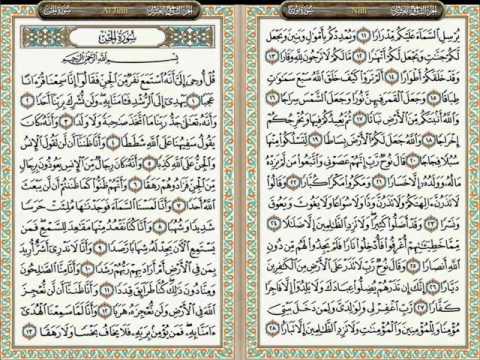 سورة نوح Nuh الجزء التاسع والعشرون
يُرْسِلِ السَّمَآءَ عَلَيْكُم مِّدْرَارًا ١١ وَيُمْدِدْكُم بِأَمْوَٰلٍ وَبَنِينَ وَيَجْعَل
لَّكُمْ جَنَّٰتٍ وَيَجْعَل لَّكُمْ أَنْهَٰرًا ١٢ مَّا لَكُمْ لَا تَرْجُونَ لِلَّهِ وَقَارًا ١٣
وَقَدْ خَلَقَكُمْ أَطْوَارًا ١٤ أَلَمْ تَرَوْا۟ كَيْفَ خَلَقَ اللَّهُ سَبْعَ سَمَٰوَٰتٍ
طِبَاقًا ١٥ وَجَعَلَ الْقَمَرَ فِيهِنَّ نُورًا وَجَعَلَ الشَّمْسَ سِرَاجًا ١٦
وَاللَّهُ أَنۢبَتَكُم مِّنَ الْأَرْضِ نَبَاتًا ١٧ ثُمَّ يُعِيدُكُمْ فِيهَا وَيُخْرِجُكُمْ
إِخْرَاجًا ١٨ وَاللَّهُ جَعَلَ لَكُمُ الْأَرْضَ بِسَاطًا ١٩ لِّتَسْلُكُوا۟ مِنْهَا
سُبُلًا فِجَاجًا ٢٠ قَالَ نُوحٌ رَّبِّ إِنَّهُمْ عَصَوْنِى وَاتَّبَعُوا۟ مَن لَّمْ يَزِدْهُ
مَالُهُۥ وَوَلَدُهُۥٓ إِلَّا خَسَارًا ٢١ وَمَكَرُوا۟ مَكْرًا كُبَّارًا ٢٢ وَقَالُوا۟
لَا تَذَرُنَّ ءَالِهَتَكُمْ وَلَا تَذَرُنَّ وَدًّا وَلَا سُوَاعًا وَلَا يَغُوثَ وَيَعُوقَ
وَنَسْرًا ٢٣ وَقَدْ أَضَلُّوا۟ كَثِيرًا وَلَا تَزِدِ الظَّٰلِمِينَ إِلَّا ضَلَٰلًا ٢٤
مِّمَّا خَطِيٓـَٰٔتِهِمْ أُغْرِقُوا۟ فَأُدْخِلُوا۟ نَارًا فَلَمْ يَجِدُوا۟ لَهُم مِّن دُونِ
اللَّهِ أَنصَارًا ٢٥ وَقَالَ نُوحٌ رَّبِّ لَا تَذَرْ عَلَى الْأَرْضِ مِنَ الْكَٰفِرِينَ
دَيَّارًا ٢٦ إِنَّكَ إِن تَذَرْهُمْ يُضِلُّوا۟ عِبَادَكَ وَلَا يَلِدُوٓا۟ إِلَّا فَاجِرًا
كَفَّارًا ٢٧ رَّبِّ اغْفِرْ لِى وَلِوَٰلِدَىَّ وَلِمَن دَخَلَ بَيْتِىَ
مُؤْمِنًا وَلِلْمُؤْمِنِينَ وَالْمُؤْمِنَٰتِ وَلَا تَزِدِ الظَّٰلِمِينَ إِلَّا تَبَارًۢا ٢٨
سورة الجن Al Jinn الجزء التاسع والعشرون
سُورَةُ الجِنِّ
بِسْمِ اللَّهِ الرَّحْمَٰنِ الرَّحِيمِ
قُلْ أُوحِىَ إِلَىَّ أَنَّهُ اسْتَمَعَ نَفَرٌ مِّنَ الْجِنِّ فَقَالُوٓا۟ إِنَّا سَمِعْنَا قُرْءَانًا
عَجَبًا ١ يَهْدِىٓ إِلَى الرُّشْدِ فَـَٔامَنَّا بِهِۦ وَلَن نُّشْرِكَ بِرَبِّنَآ أَحَدًا ٢
وَأَنَّهُۥ تَعَٰلَىٰ جَدُّ رَبِّنَا مَا اتَّخَذَ صَٰحِبَةً وَلَا وَلَدًا ٣ وَأَنَّهُۥ كَانَ
يَقُولُ سَفِيهُنَا عَلَى اللَّهِ شَطَطًا ٤ وَأَنَّا ظَنَنَّآ أَن لَّن تَقُولَ الْإِنسُ
وَالْجِنُّ عَلَى اللَّهِ كَذِبًا ٥ وَأَنَّهُۥ كَانَ رِجَالٌ مِّنَ الْإِنسِ يَعُوذُونَ بِرِجَالٍ
مِّنَ الْجِنِّ فَزَادُوهُمْ رَهَقًا ٦ وَأَنَّهُمْ ظَنُّوا۟ كَمَا ظَنَنتُمْ أَن لَّن يَبْعَثَ
اللَّهُ أَحَدًا ٧ وَأَنَّا لَمَسْنَا السَّمَآءَ فَوَجَدْنَٰهَا مُلِئَتْ حَرَسًا
شَدِيدًا وَشُهُبًا ٨ وَأَنَّا كُنَّا نَقْعُدُ مِنْهَا مَقَٰعِدَ لِلسَّمْعِ فَمَن
يَسْتَمِعِ الْـَٔانَ يَجِدْ لَهُۥ شِهَابًا رَّصَدًا ٩ وَأَنَّا لَا نَدْرِىٓ أَشَرٌّ أُرِيدَ
بِمَن فِى الْأَرْضِ أَمْ أَرَادَ بِهِمْ رَبُّهُمْ رَشَدًا ١٠ وَأَنَّا مِنَّا الصَّٰلِحُونَ
وَمِنَّا دُونَ ذَٰلِكَ كُنَّا طَرَآئِقَ قِدَدًا ١١ وَأَنَّا ظَنَنَّآ أَن لَّن نُّعْجِزَ
اللَّهَ فِى الْأَرْضِ وَلَن نُّعْجِزَهُۥ هَرَبًا ١٢ وَأَنَّا لَمَّا سَمِعْنَا الْهُدَىٰٓ
ءَامَنَّا بِهِۦ فَمَن يُؤْمِنۢ بِرَبِّهِۦ فَلَا يَخَافُ بَخْسًا وَلَا رَهَقًا ١٣